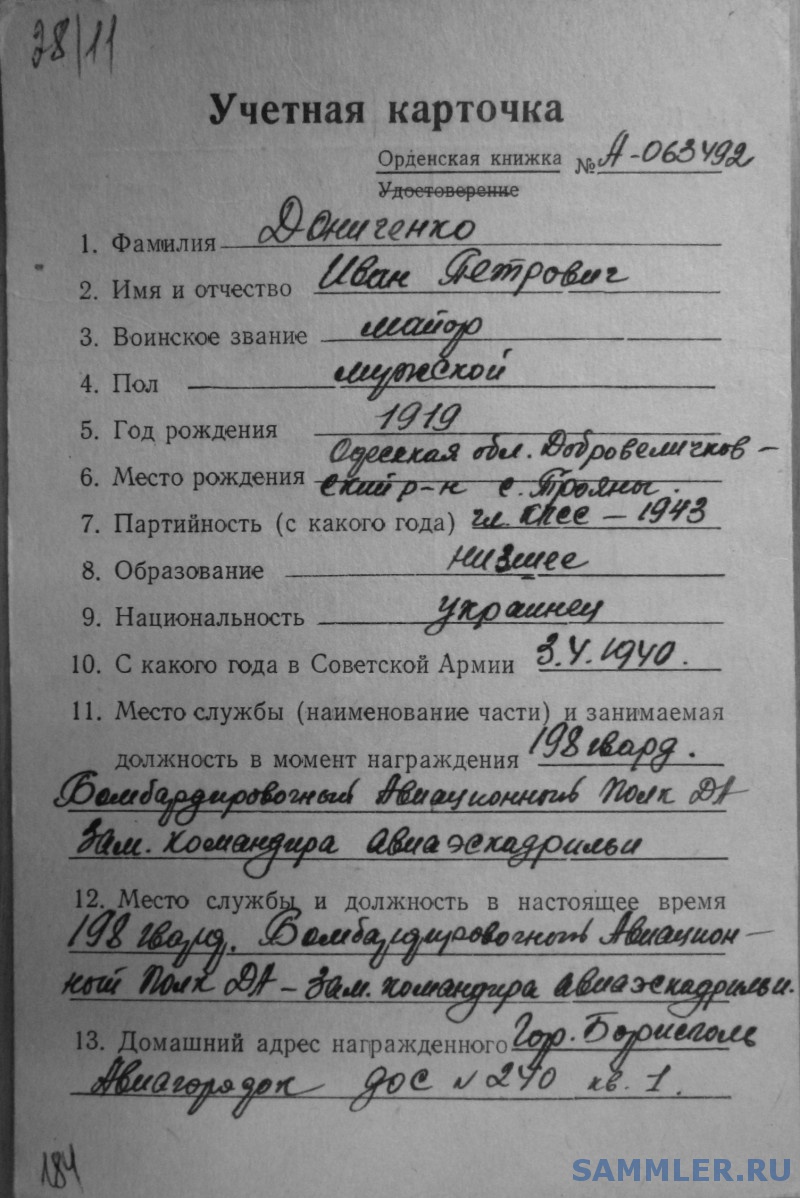 28/11
Учетная карточка
Орденская книжка № А-063492
Удостоверение
1. Фамилия Дониченко
2. Имя и отчество Иван Петрович
3. Воинское звание майор
4. Пол мужской
5. Год рождения 1919
Одесская обл. Добровеличков-
6. Место рождения ский р-н с. Трояны.
7. Партийность (с какого года) чл. КПСС – 1943
8. Образование низшее
9. Национальность украинец
10. С какого года в Советской Армии 3.X.1940.
11. Место службы (наименование части) и занимаемая
должность в момент награждения 198 гвард.
Бомбардировочный Авиационный Полк ДА
Зам. командира авиаэскадрильи
12. Место службы и должность в настоящее время
198 гвард. Бомбардировочный Авиацион-
ный Полк ДА – Зам. командира авиаэскадрильи.
13. Домашний адрес награжденного Гор. Борисполь
Авиагородок ДОС № 240 кв. 1.
184
SAMMLER.RU